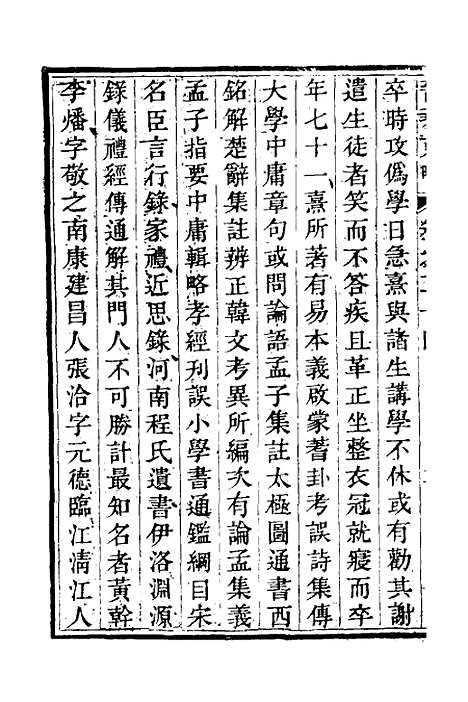 卒時攻僞學日急熹與諸生講學不休或有勸其謝
遣生徒者笑而不答疾且革正坐整衣冠就寢而卒
年七十一熹所著有易本義啟蒙蓍卦考誤詩集傳
大學中庸章句或問論語孟子集註太極圖通書西
銘解楚辭集註辨正韓文考異所編次有論孟集義
孟子指要中庸輯略孝經刊誤小學書通鑑綱目宋
名臣言行錄家禮近思錄河南程氏遺書伊洛淵源
錄儀禮經傳通解其門人不可勝計最知名者黃幹
李燔字敬之南康建昌人張洽字元德臨江清江人